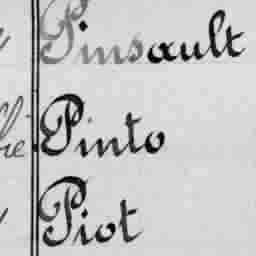 Pinsault
Pinto
Piot